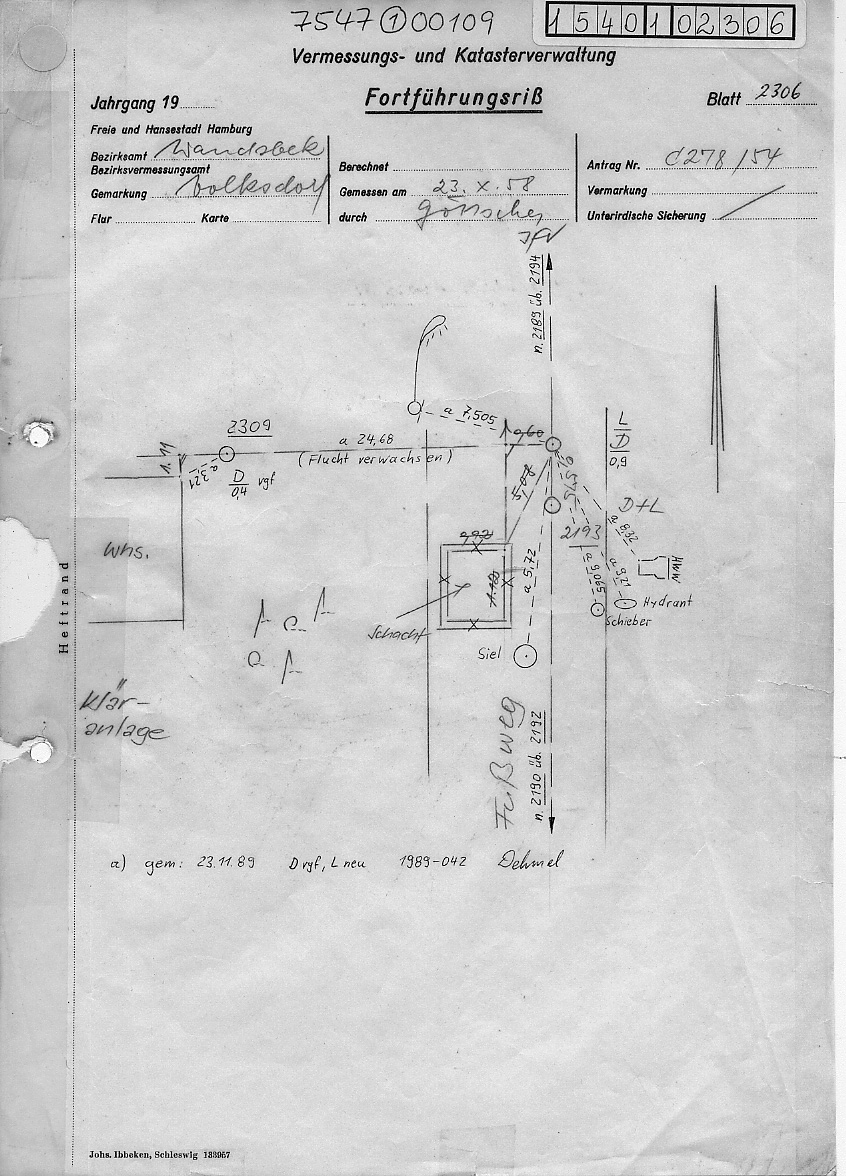 7547 ① 00109
15401 02306
Vermessungs- und Katasterverwaltung
Jahrgang 19
Fortführungsriß
Blatt 2306
Freie und Hansestadt Hamburg
Bezirksamt Wandsbek
Bezirksvermessungsamt
Gemarkung Volksdorf
Flur Karte
Berechnet
Gemessen am 23. X. 58
durch
Antrag Nr. C278/54
Vermarkung
Unterirdische Sicherung
n. 2189 üb. 2194
a 7,505
2309
a 24,68
(Flucht verwachsen)
1.11
a 3,21
D
0,4
vgf
L
D
0,9
D+L
2193
a 8,32
a 9,21
a 9,065
HWW
Hydrant
Schieber
a 5,72
Whs.
Schacht
Siel
Klär-
anlage
Fußweg
n. 2190 üb. 2192
Heftrand
a) gem: 23.11.89 D vgf, L neu 1989-042 Dehmel
Johs. Ibbeken, Schleswig 183957